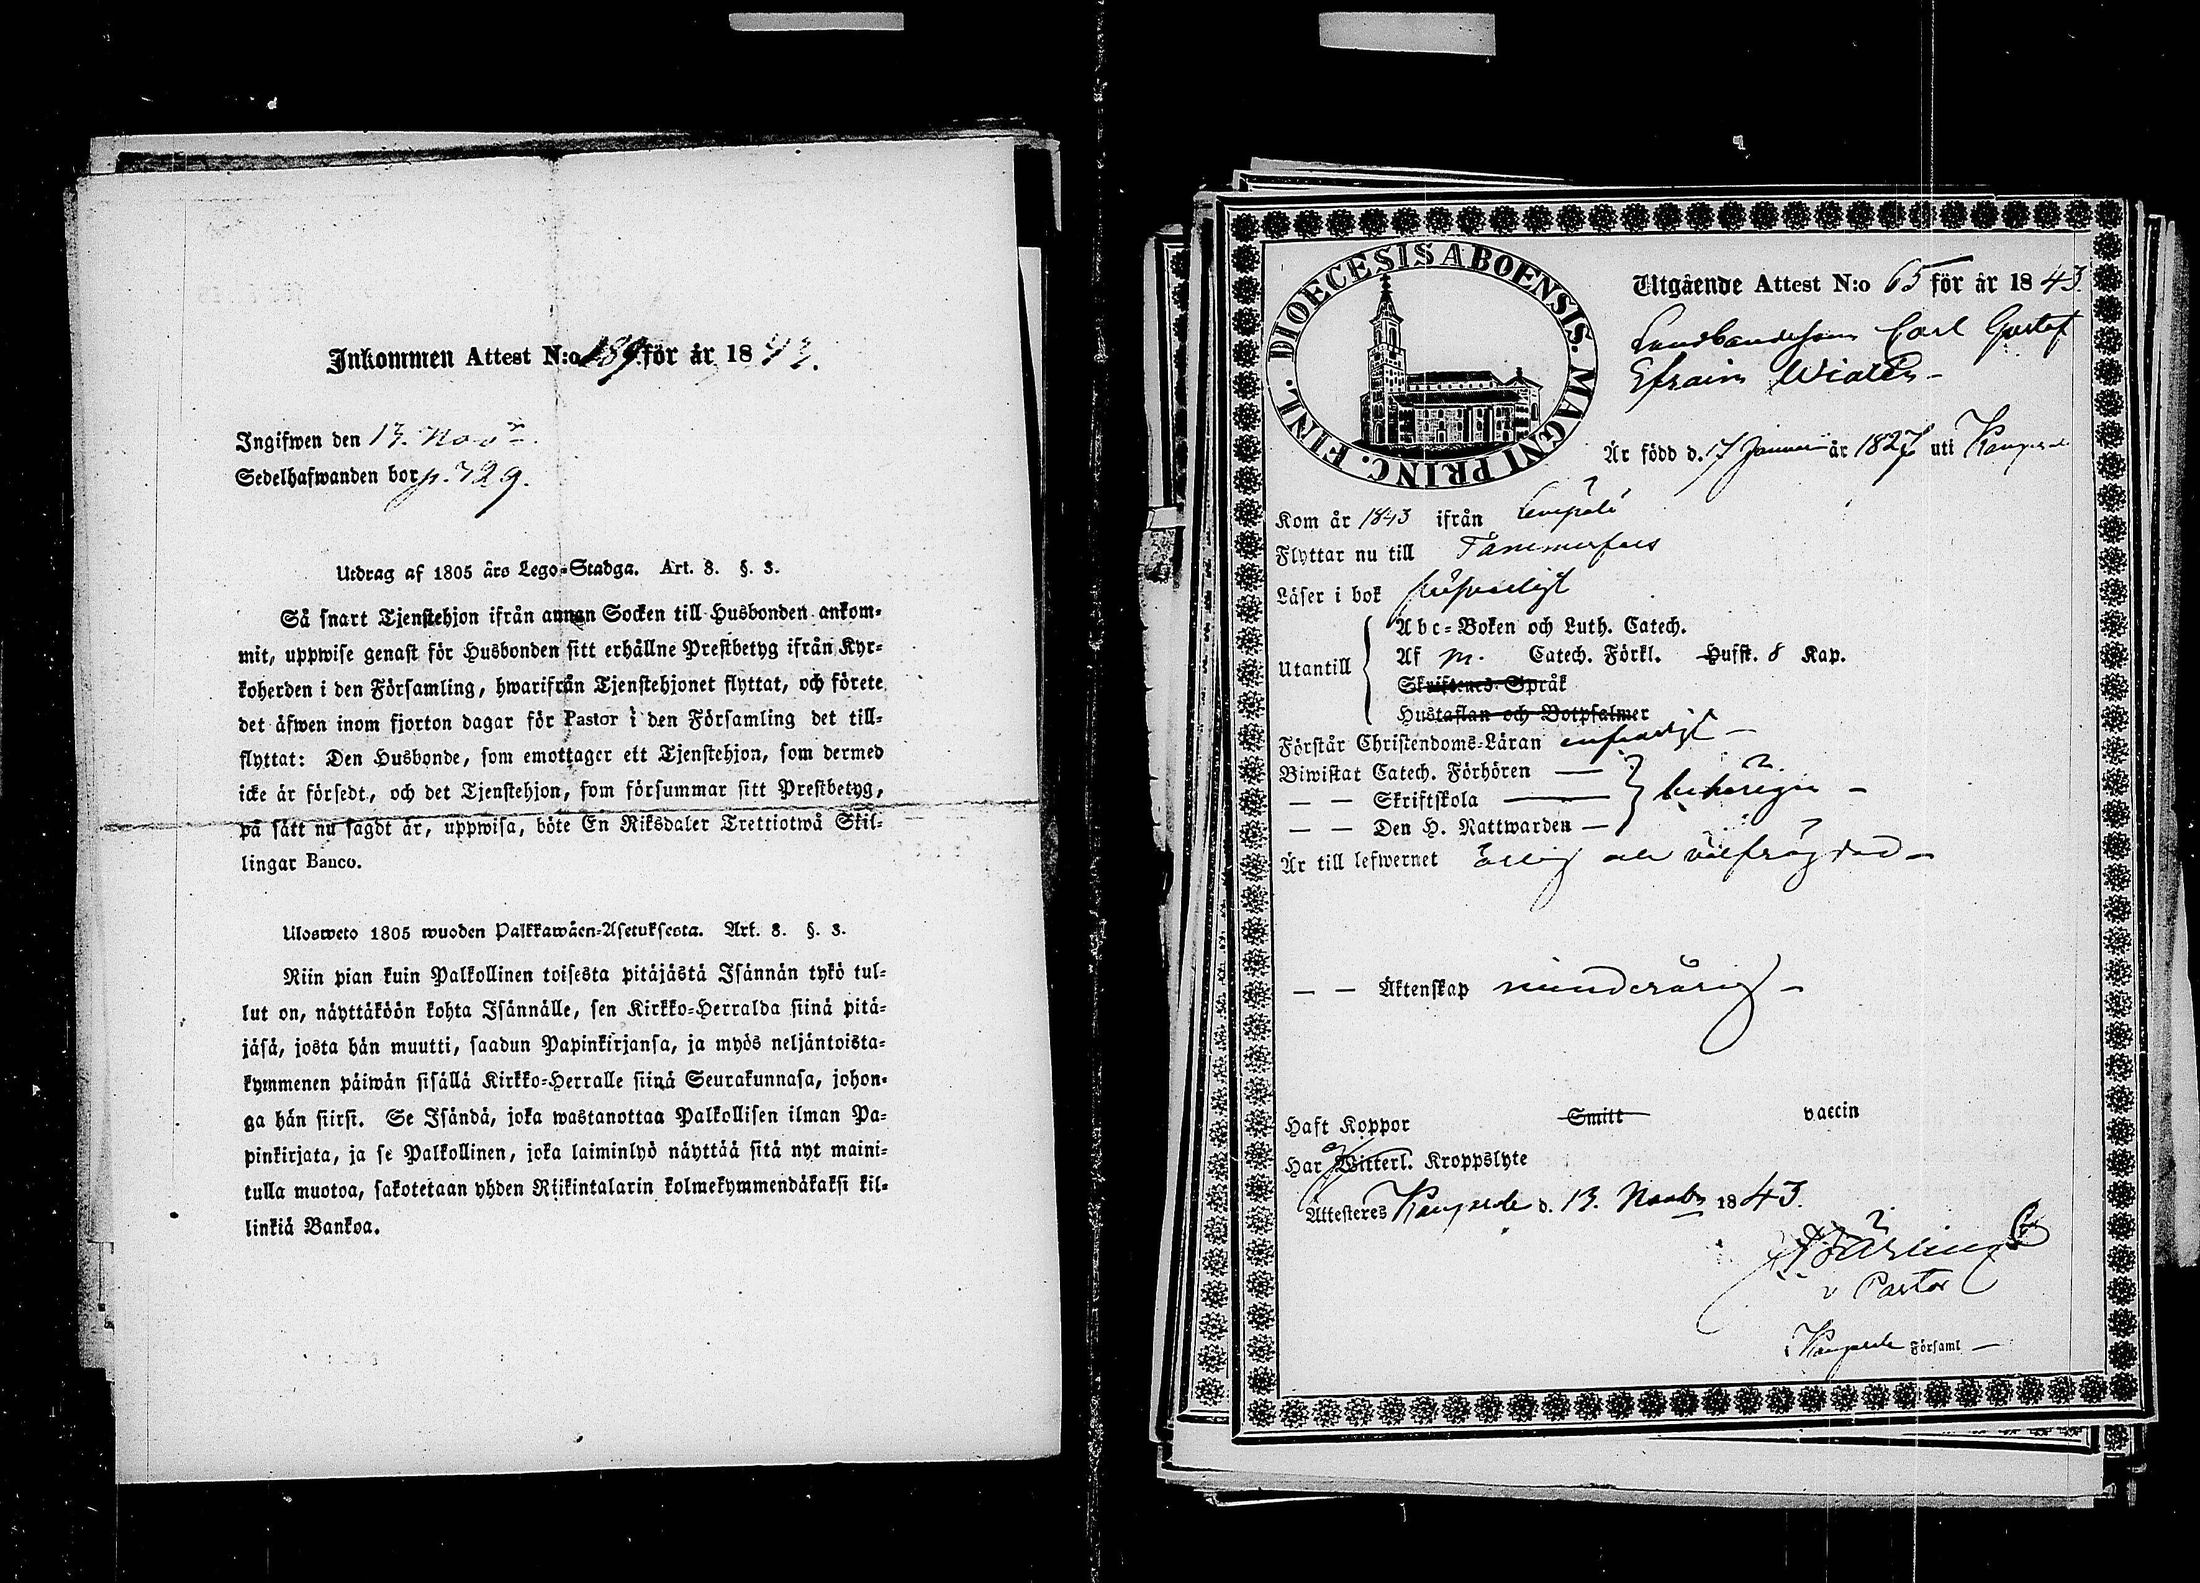 Inkommen Attest N:o 189 för år 1843.
Ingifwen den 13. Novr.
Sedelhafwanden bor p. 729.
Utdrag af 1805 års Lego-Stadga. Art. 8. §. 3.
Så snart Tjenstehjon ifrån annan Socken till Husbonden ankom-
mit, uppwise genast för Husbonden sitt erhållne Prestbetyg ifrån Kyr-
koherden i den Församling, hwarifrån Tjenstehjonet flyttat, och förete
det äfwen inom fjorton dagar för Pastor i den Församling det till-
flyttat: Den Husbonde, som emottager ett Tjenstehjon, som dermed
icke är försedt, och det Tjenstehjon, som försummar sitt Prestbetyg,
på sätt nu sagdt är, uppwisa, böte En Riksdaler Trettiotwå Skil-
lingar Banco.
Ulosweto 1805 wuoden Palkkawäen-Asetuksesta. Art. 8. §. 3.
Niin pian kuin Palkollinen toisesta pitäjästä Isännän tykö tul-
lut on, näyttäköön kohta Isännälle, sen Kirkko-Herralda siinä pitä-
jäsä, josta hän muutti, saadun Papinkirjansa, ja myös neljäntoista-
kymmenen päiwän sisällä Kirkko-Herralle siinä Seurakunnasa, johon-
ga hän siirsi. Se Isändä, joka wastanottaa Palkollisen ilman Pa-
pinkirjata, ja se Palkollinen, joka laiminlyö näyttää sitä nyt maini-
tulla muotoa, sakotetaan yhden Riikintalarin kolmekymmendäkaksi kil-
linkiä Bankoa.
DIOECESIS ABOENSIS. MAGNI PRINC. FINL.
Utgående Attest N:o 65 för år 1843
Landbondeson Carl Gustaf
Efraim
Är född d. 17 Januari år 1827 uti Kangasala
Kom år 1843 ifrån Lempälä
Flyttar nu till Tammerfors
Läser i bok
Utantill
Abc-Boken och Luth. Catech.
Af m. Catech. Förkl. Hufst. 8 Kap.
Skriftenes Språk
Hustaflan och Botpsalmer
Förstår Christendoms-Läran enfaldigt –
Biwistat Catech. Förhören —
— — Skriftskola — behörigen –
— — Den H. Nattwarden —
Är till lefwernet ärlig och välfrägdad –
— — Äktenskap minderårig –
Haft Koppor Smitt vaccin
Har Witterl. Kroppslyte
Attesteres Kangasala d. 13. Novbr 1843.
v Pastor
Kangasala Församl –